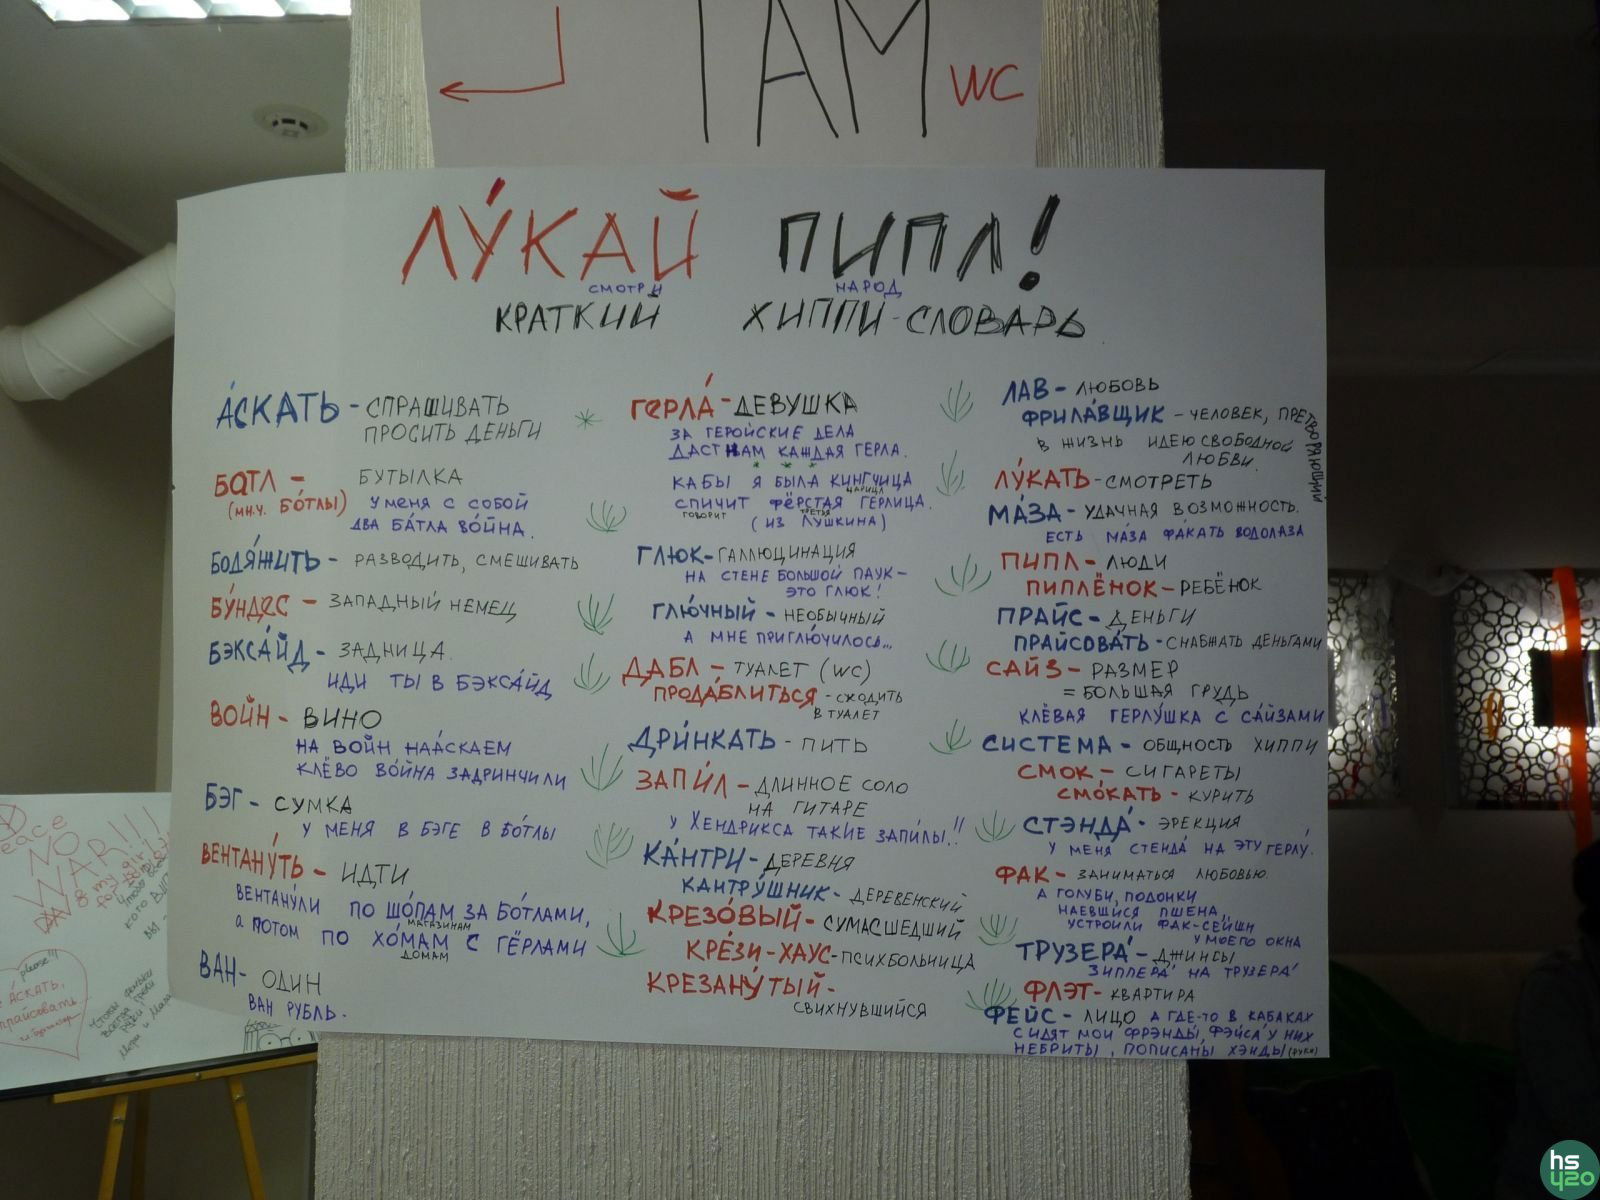 ТАМ WC
ЛУ́КАЙ ПИПЛ!
СМОТРИ НАРОД
КРАТКИЙ ХИППИ-СЛОВАРЬ
А́СКАТЬ - СПРАШИВАТЬ
ПРОСИТЬ ДЕНЬГИ
БОТЛ - БУТЫЛКА
(МН.Ч. БО́ТЛЫ) У МЕНЯ С СОБОЙ
ДВА БА́ТЛА ВО́ЙНА.
БОДЯ́ЖИТЬ - РАЗВОДИТЬ, СМЕШИВАТЬ
БУ́НДЕС - ЗАПАДНЫЙ НЕМЕЦ
БЭКСА́ЙД - ЗАДНИЦА.
ИДИ ТЫ В БЭКСА́ЙД
ВОЙН - ВИНО
НА ВОЙН НАА́СКАЕМ
КЛЁВО ВО́ЙНА ЗАДРИНЧИЛИ
БЭГ - СУМКА
У МЕНЯ В БЭГЕ В БО́ТЛЫ
ВЕНТАНУ́ТЬ - ИДТИ
ВЕНТАНУ́ЛИ ПО ШО́ПАМ ЗА БО́ТЛАМИ,
МАГАЗИНАМ
а ПОТОМ ПО ХО́МАМ С ГЁРЛАМИ
ДОМАМ
ВАН - ОДИН
ВАН РУБЛЬ.
ГЕРЛА́ - ДЕВУШКА
ЗА ГЕРОЙСКИЕ ДЕЛА
ДАСТ НАМ КАЖДАЯ ГЕРЛА.
* * *
КАБЫ Я БЫЛА КИНГЧИЦА
ЦАРИЦА
СПИЧИТ ФЁРСТАЯ ГЕРЛИЦА.
ГОВОРИТ ТРЕТЬЯ
(ИЗ ПУШКИНА)
ГЛЮК - ГАЛЛЮЦИНАЦИЯ
НА СТЕНЕ БОЛЬШОЙ ПАУК -
ЭТО ГЛЮК!
ГЛЮ́ЧНЫЙ - НЕОБЫЧНЫЙ
А МНЕ ПРИГЛЮ́ЧИЛОСЬ...
ДАБЛ - ТУАЛЕТ (WC)
ПРОДА́БЛИТЬСЯ - СХОДИТЬ
В ТУАЛЕТ
ДРИ́НКАТЬ - ПИТЬ
ЗАПИ́Л - ДЛИННОЕ СОЛО
НА ГИТАРЕ
У ХЕНДРИКСА ТАКИЕ ЗАПИ́ЛЫ!!
КА́НТРИ - ДЕРЕВНЯ
КАНТРУ́ШНИК - ДЕРЕВЕНСКИЙ
КРЕЗО́ВЫЙ - СУМАСШЕДШИЙ
КРЕ́ЗИ-ХАУС - ПСИХБОЛЬНИЦА
КРЕЗАНУ́ТЫЙ -
СВИХНУВШИЙСЯ
ЛАВ - ЛЮБОВЬ
ФРИЛА́ВЩИК - ЧЕЛОВЕК, ПРЕТВОРЯЮЩИЙ
В ЖИЗНЬ ИДЕЮ СВОБОДНОЙ
ЛЮБВИ.
ЛУ́КАТЬ - СМОТРЕТЬ
МА́ЗА - УДАЧНАЯ ВОЗМОЖНОСТЬ.
ЕСТЬ МАЗА ФА́КАТЬ ВОДОЛАЗА
ПИПЛ - ЛЮДИ
ПИПЛЁНОК - РЕБЁНОК
ПРАЙС - ДЕНЬГИ
ПРАЙСОВА́ТЬ - СНАБЖАТЬ ДЕНЬГАМИ
САЙЗ - РАЗМЕР
= БОЛЬШАЯ ГРУДЬ
КЛЁВАЯ ГЕРЛУ́ШКА С СА́ЙЗАМИ
СИСТЕМА - ОБЩНОСТЬ ХИППИ
СМОК - СИГАРЕТЫ
СМО́КАТЬ - КУРИТЬ
СТЭНДА́ - ЭРЕКЦИЯ
У МЕНЯ СТЕНДА́ НА ЭТУ ГЕРЛУ́.
ФАК - ЗАНИМАТЬСЯ ЛЮБОВЬЮ.
А ГОЛУБИ, ПОДОНКИ
НАЕВШИСЯ ПШЕНА,
УСТРОИЛИ ФАК-СЕЙШН
У МОЕГО ОКНА
ТРУЗЕРА́ - ДЖИНСЫ
ЗИППЕРА́ НА ТРУЗЕРА́
ФЛЭТ - КВАРТИРА
ФЕЙС - ЛИЦО А ГДЕ-ТО В КАБАКАХ
СИДЯТ МОИ ФРЭНДЫ, ФЭЙСА́ У НИХ
НЕБРИТЫ, ПОПИСАНЫ ХЭНДЫ (РУКИ)
eace
NO
WAR!!!
please!!!
А́СКАТЬ,
прайсовать
hs
420